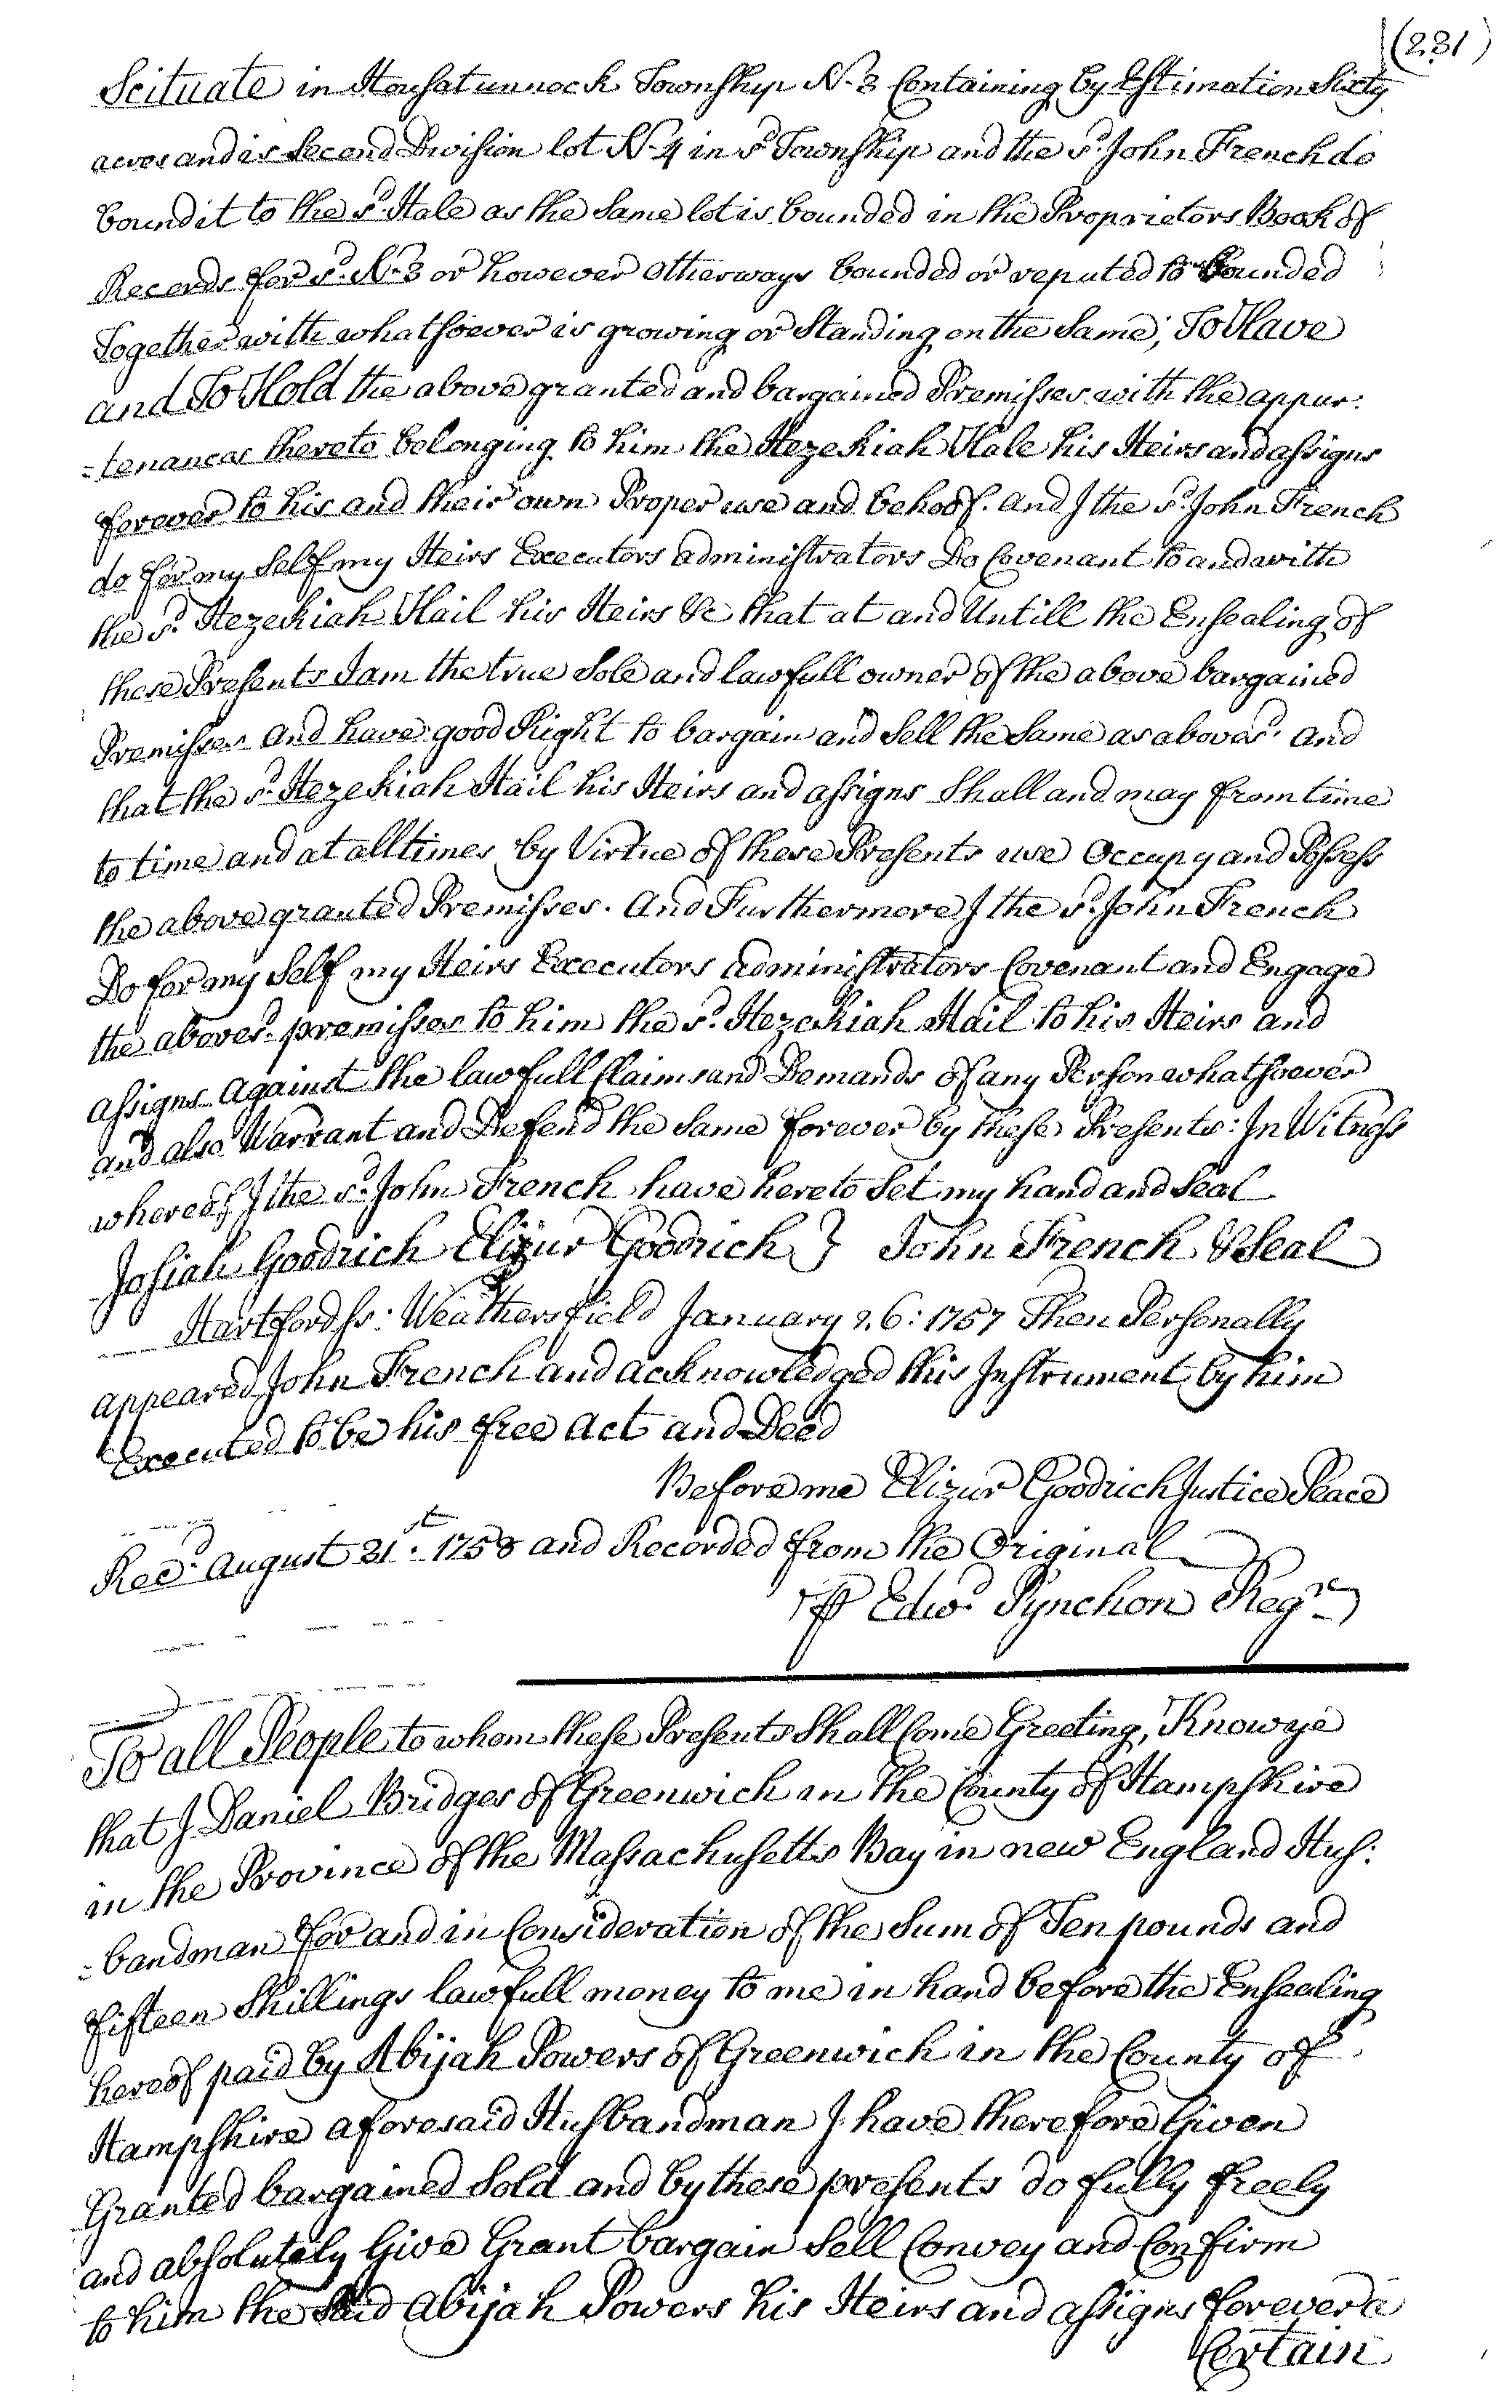 (231)
Scituate in Housatunnock Township No. 3 Containing by Estimation Sixty
acres and is Second Division lot No. 4 in sd. Township and the sd. John French do
bound it to the sd. Hale as the Same lot is bounded in the Proprietors Book of
Records for sd. No. 3 or however otherways bounded or reputed to be bounded
Together with whatsoever is growing or Standing on the Same, To Have
and To Hold the above granted and bargained Premisses with the appur:
=tenances thereto belonging to him the Hezekiah Hale his Heirs and assigns
forever to his and their own Proper use and behoof. and I the sd. John French
do for my Self my Heirs Executors administrators Do Covenant to and with
the sd. Hezekiah Hail his Heirs &c that at and Untill the Ensealing of
these Presents I am the true Sole and lawfull owner of the above bargained
Premisses and have good Right to bargain and Sell the Same as abovesd. and
that the sd. Hezekiah Hail his Heirs and assigns Shall and may from time
to time and at all times by Virtue of these Presents use Occupy and Possess
the above granted Premisses. And Furthermore I the sd. John French
Do for my Self my Heirs Executors administrators Covenant and Engage
the abovesd. premisses to him the sd. Hezekiah Hail to his Heirs and
assigns against the lawfull Claims and Demands of any Person whatsoever
and also Warrant and Defend the Same forever by these Presents: In Witness
whereof I the sd. John French have hereto Set my hand and Seal
Josiah Goodrich Elizur Goodrich } John French & Seal
Hartford ss: Weathersfield January 26: 1757 Then Personally
appeared John French and acknowledged this Instrument by him
Executed to be his free act and Deed
Before me Elizur Goodrich Justice Peace
Recd. august 31st. 1758 and Recorded from the Original
⅌ Edwd. Pynchon Regr.
To all People to whom these Presents Shall Come Greeting, Know ye
that I Daniel Bridges of Greenwich in the County of Hampshire
in the Province of the Massachusetts Bay in new England Hus:
=bandman for and in Consideration of the Sum of Ten pounds and
fifteen Shillings lawfull money to me in hand before the Ensealing
hereof paid by Abijah Powers of Greenwich in the County of
Hampshire aforesaid Husbandman I have therefore Given
Granted bargained Sold and by these presents do fully freely
and absolutely Give Grant bargain Sell Convey and Confirm
to him the Said Abijah Powers his Heirs and assigns forever a
Certain